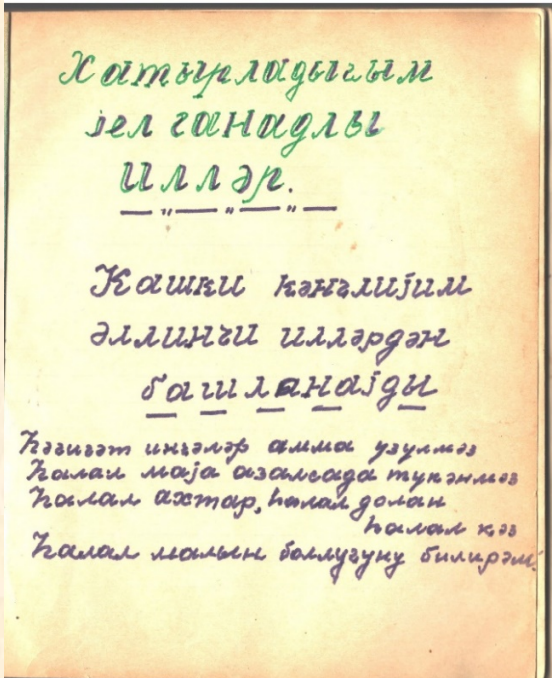 Хатырладығым
јел ганадлы
илләр.
Кашки кәнчлијим
әллинчи илләрдән
башланајды
Һәгигәт инҹәләр амма үзүлмәз
Һалал маја азалсада түкәнмәз
Һалал ахтар, һалал долан
һалал кәз
Һалал малын боллуғуну билирәм.